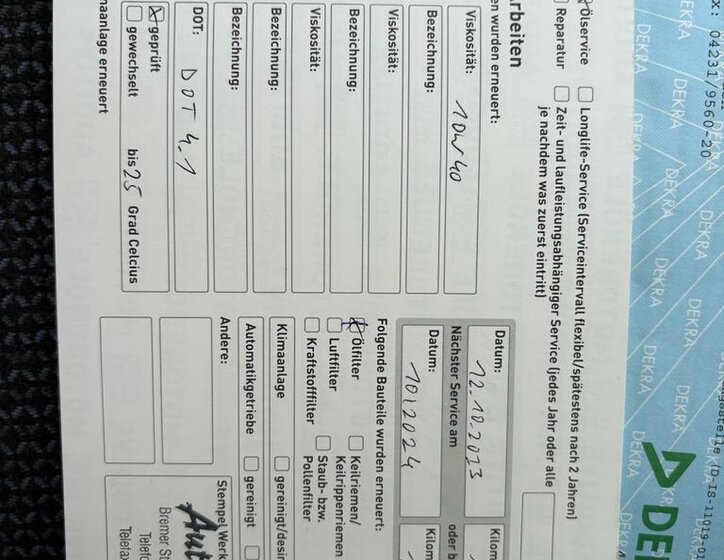 x: 04231/9560-20
DEKRA
Ölservice
Reparatur
Longlife-Service (Serviceintervall flexibel/spätestens nach 2 Jahren)
Zeit- und laufleistungsabhängiger Service (jedes Jahr oder alle
je nachdem was zuerst eintritt)
rbeiten
en wurden erneuert:
Viskosität: 10W40
Bezeichnung:
Viskosität:
Bezeichnung:
Viskosität:
Bezeichnung:
Bezeichnung:
DOT: DOT 4.1
geprüft
gewechselt bis 25 Grad Celcius
maanlage erneuert
Datum: 12.10.2023
Kilom
Nächster Service am
oder b
Datum: 10/2024
Kilom
Folgende Bauteile wurden erneuert:
Ölfilter
Luftfilter
Kraftstofffilter
Keilriemen/
Keilrippenriemen
Staub- bzw.
Pollenfilter
Klimaanlage
gereinigt/desin
Automatikgetriebe
gereinigt
Andere:
Stempel Werk
Aut
Bremer St
Telefo
Telefax